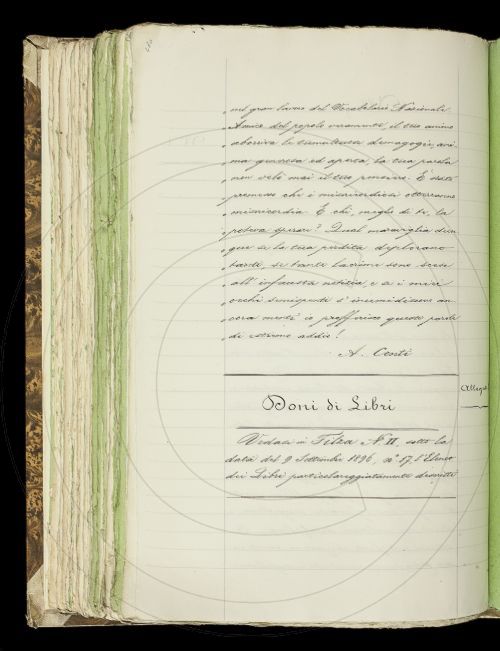 nel gran lavoro del Vocabolario Nazionale.
Amico del popolo veramente, il tuo animo
aborriva la tumultuosa demagogia; ani-
ma generosa ed aperta, la tua parola
non velò mai il tuo pensiero. È stato
promesso che i misericordiosi otterranno
misericordia. E chi, meglio di te, la
poteva sperare? Qual maraviglia dun-
que se la tua perdita deplorano
tanti, se tante lacrime sono scese
all' infausta notizia e se i miei
occhi semispenti s' inumidiscono an-
cora mentr' io profferisco queste parole
di estremo addio!
A. Conti
Allegat
Doni di Libri
Vedasi in Filza N. II, sotto la
data del 9 Settembre 1896, n° 57, l'Elenco
dei Libri particolareggiatamente descritti